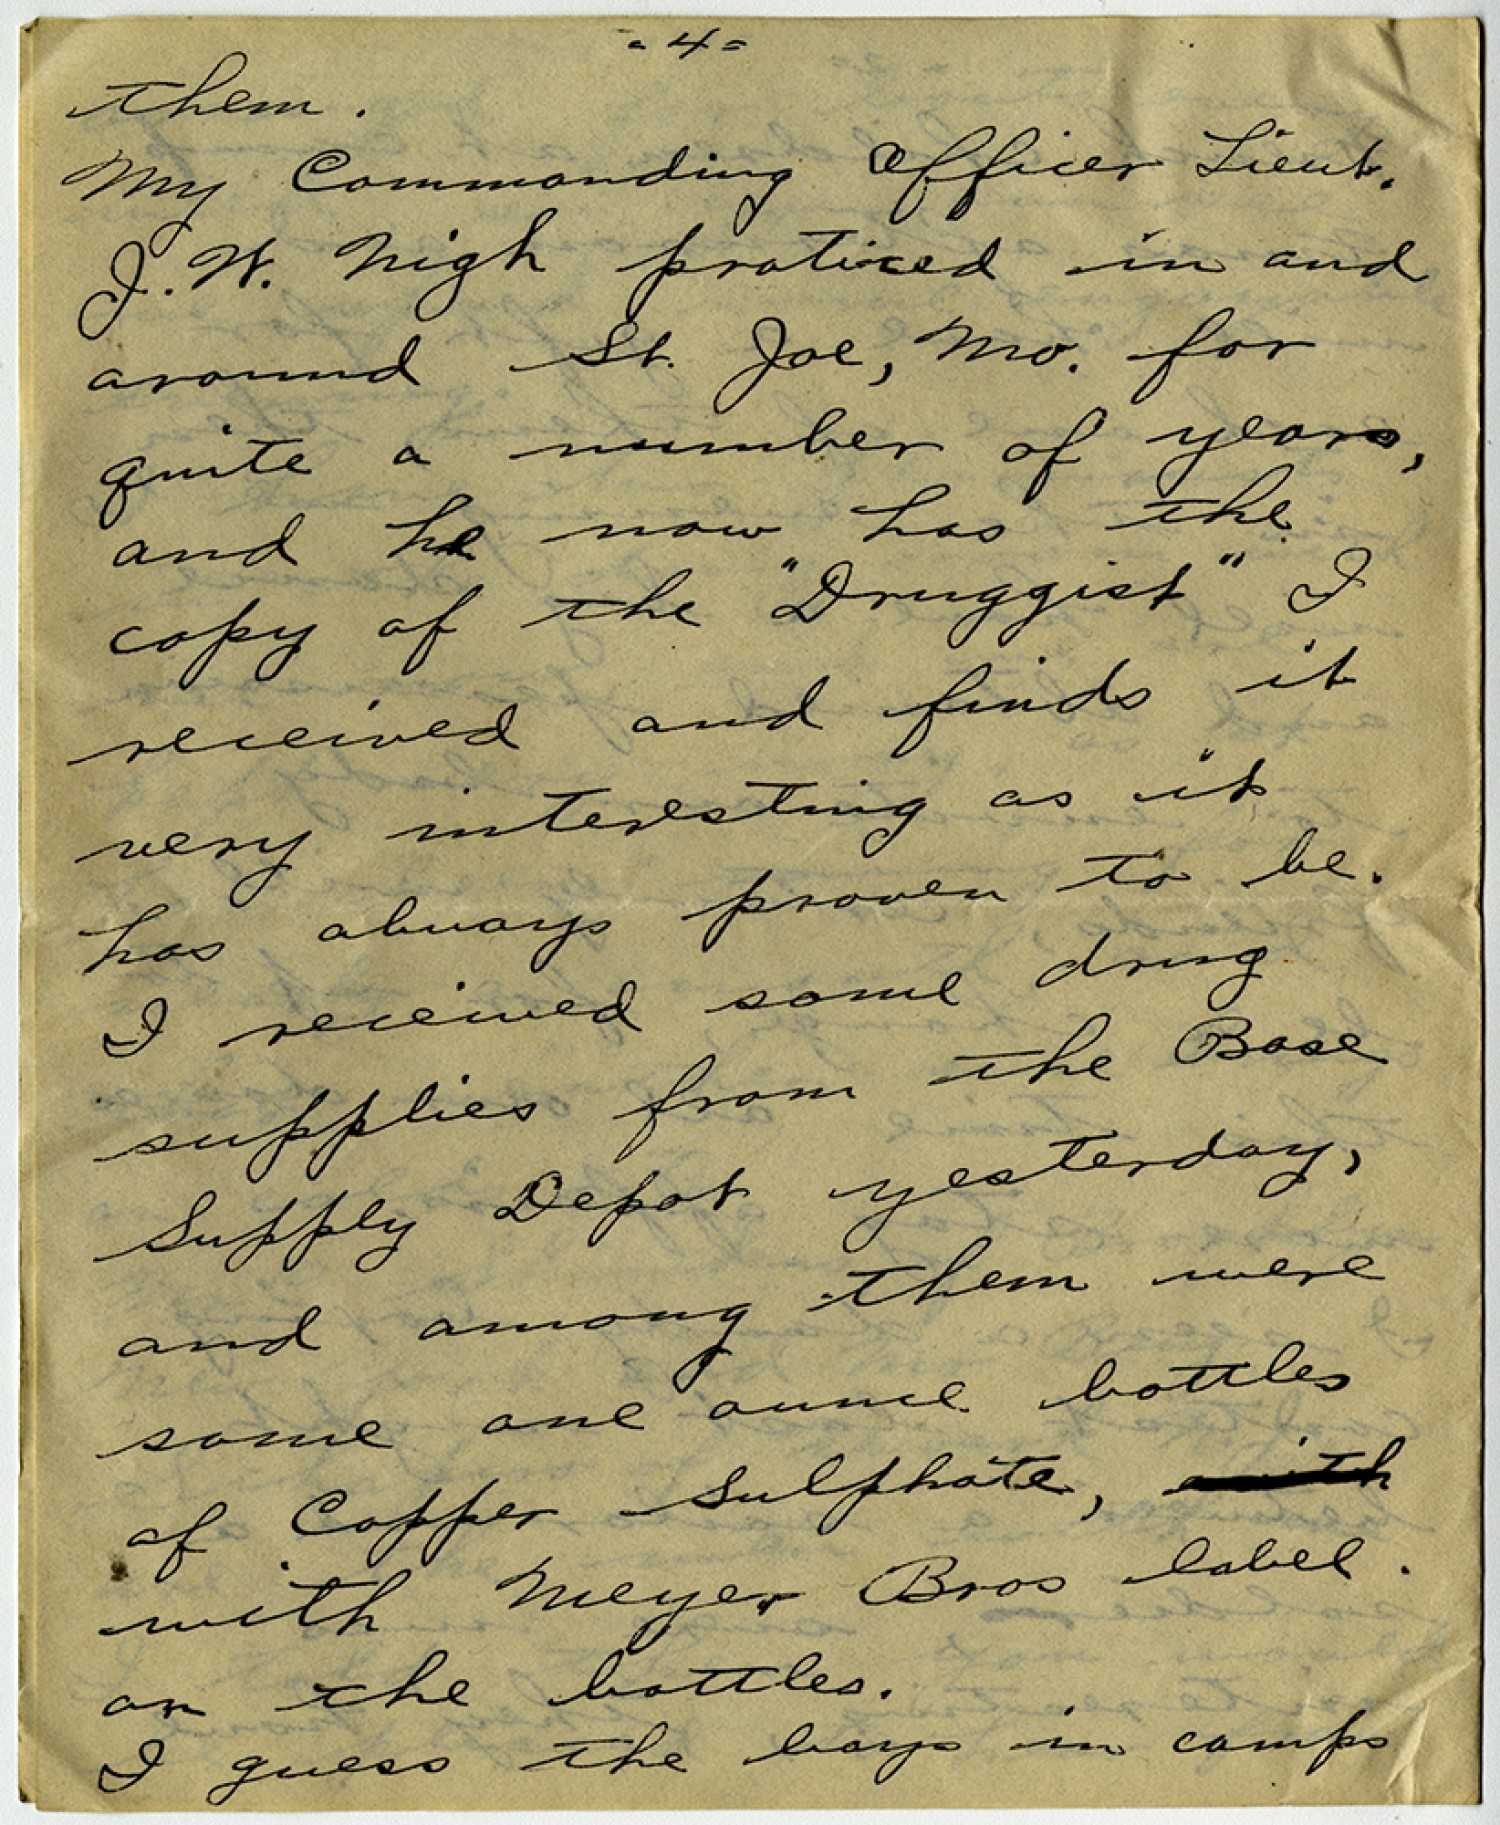 - 4 =
them.
My Commanding Officer Lieut.
J. W. Nigh praticed in and
around St. Joe, Mo. for
quite a number of years,
and he now has the
copy of the "Druggist" I
received and finds it
very interesting as it
has always proven to be.
I received some drug
supplies from the Base
Supply Depot yesterday,
and among them were
some one ounce bottles
of Copper Sulphate, with
with Meyer Bros label.
on the bottles.
I guess the boys in camps